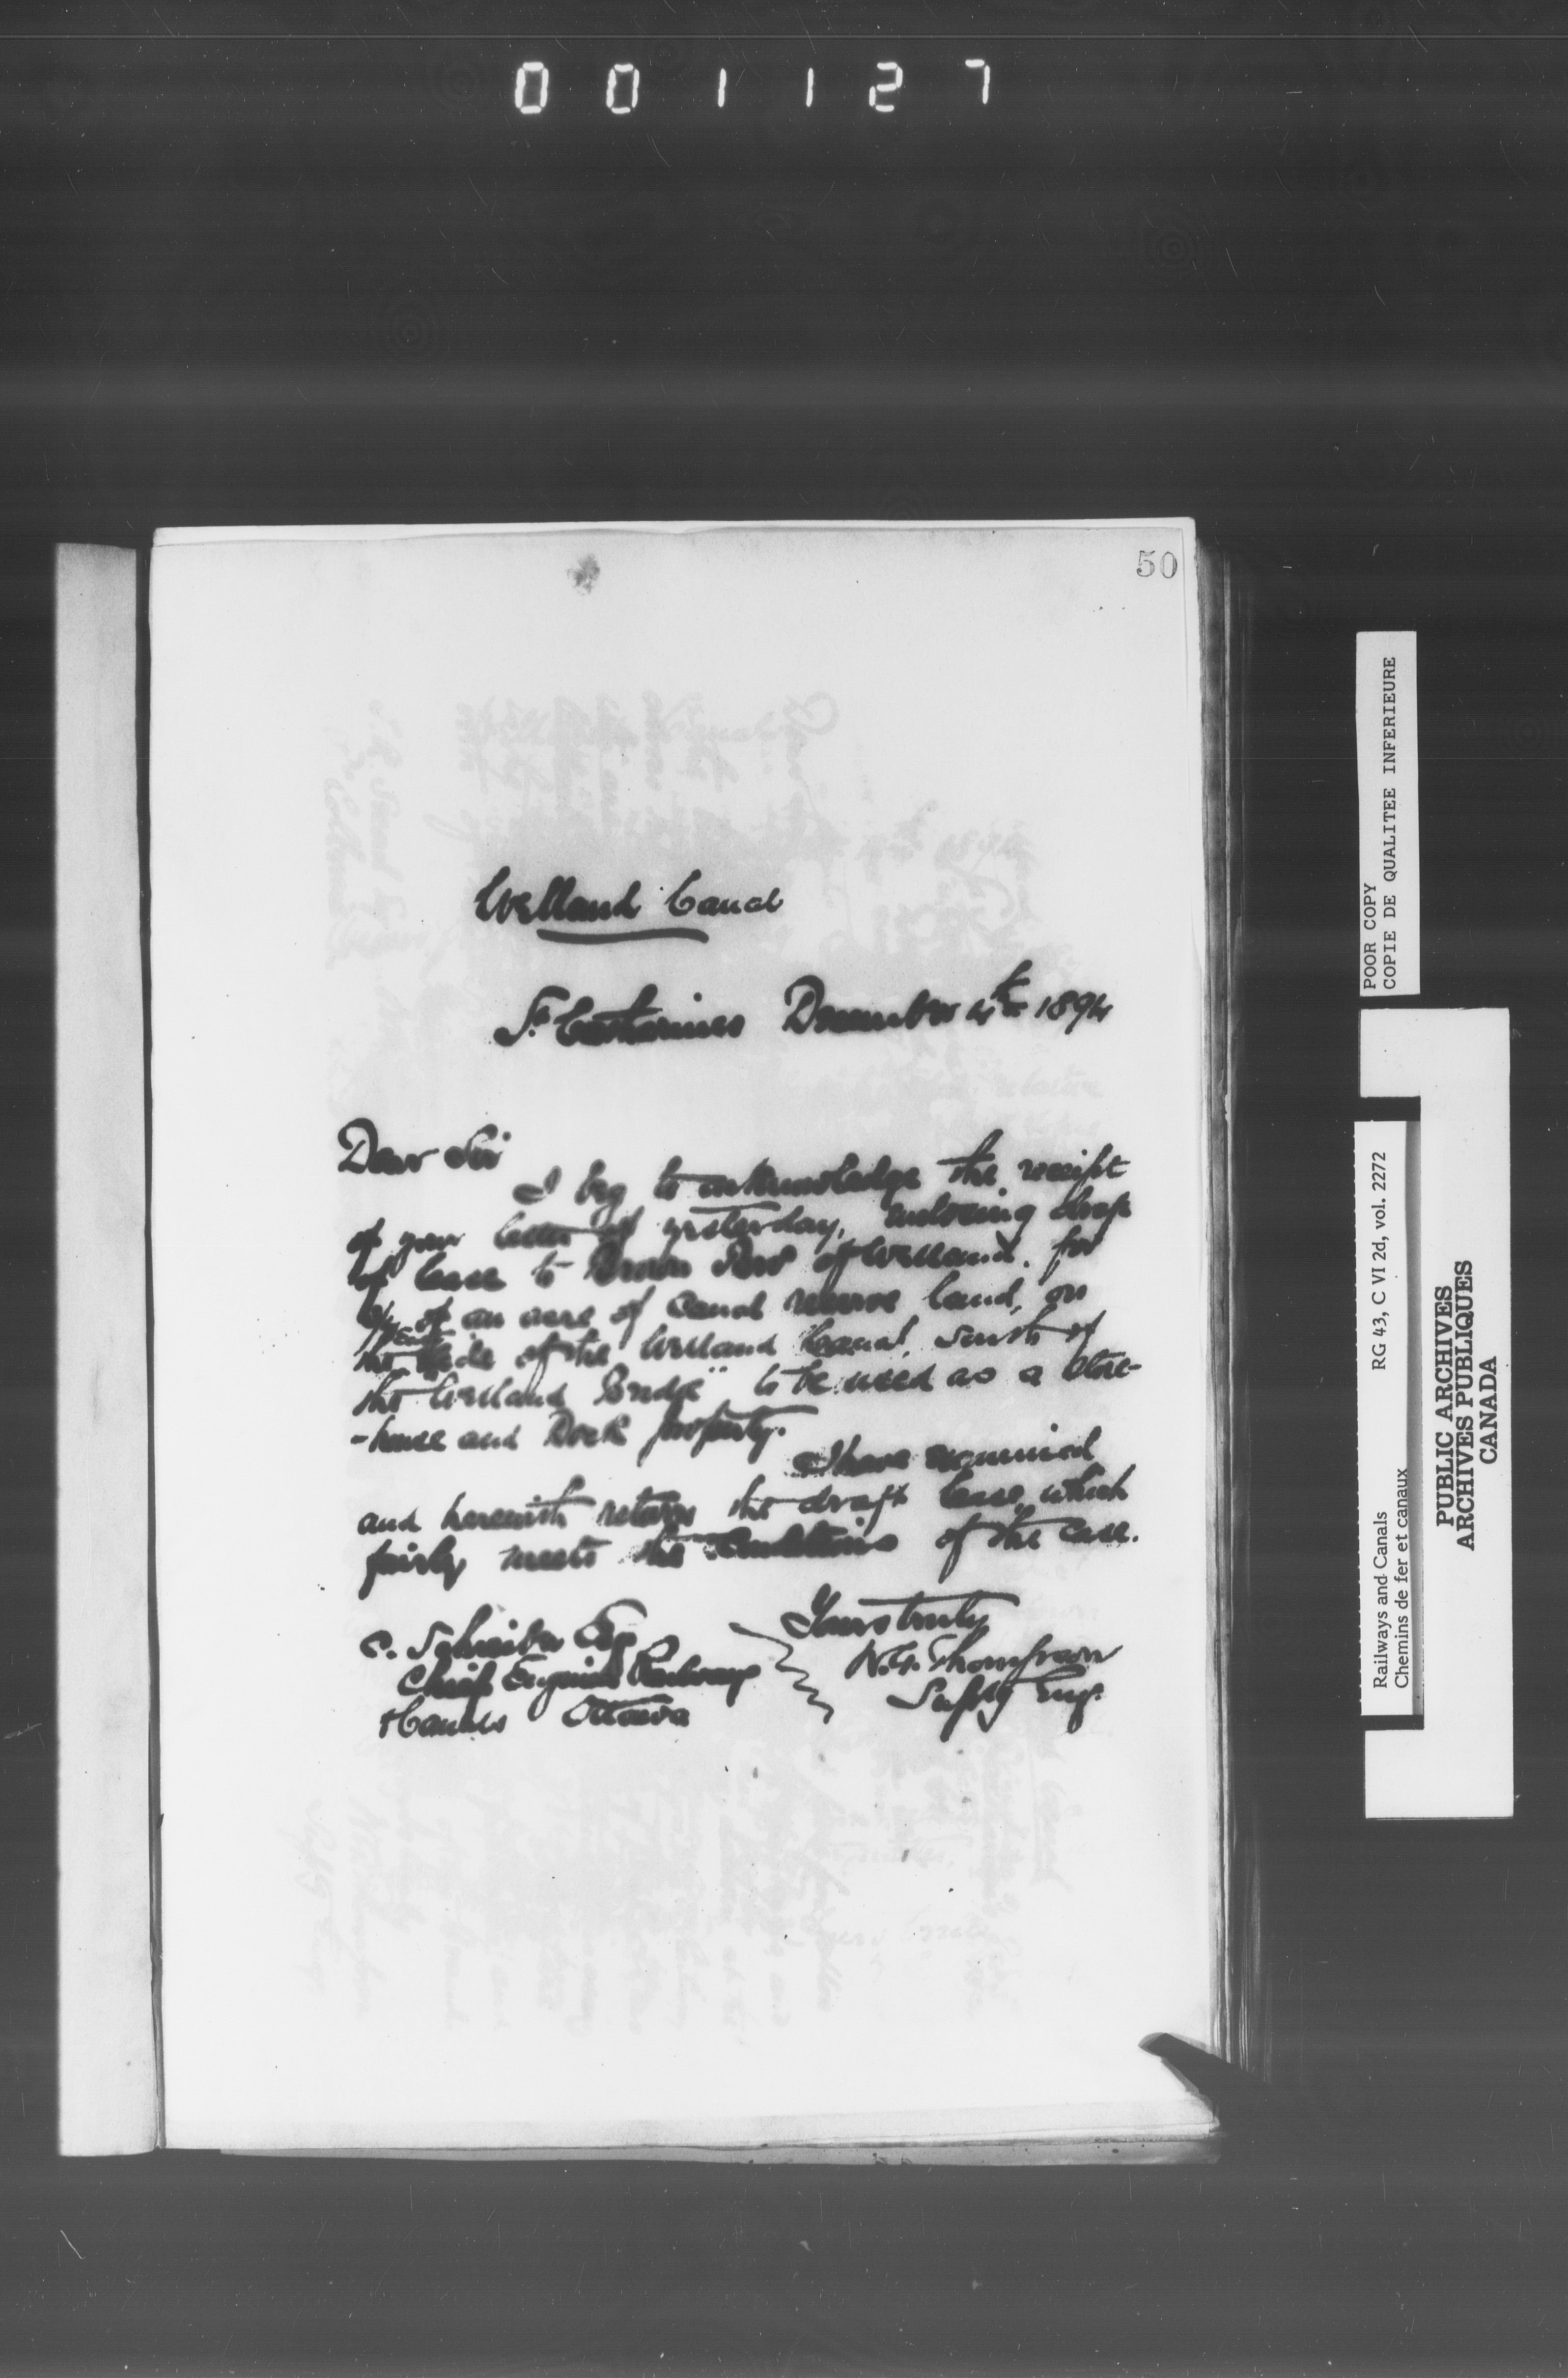 001127
50
Welland Canal
St Catharines December 4th 1894
Dear Sir
I beg to acknowledge the receipt
of your letter of yesterday, enclosing draft
of lease to Brown Bros of Welland for
of an acre of Canal reserve land, on
the side of the Welland Canal, south of
the Welland Bridge" to be used as a store-
-house and Dock property.
I have examined
and herewith return the draft lease, which
fairly meets the conditions of the case.
Yours truly
W.G. Thompson
Suptg Engr.
C. Schreiber Esq
Chief Engineer Railways
& Canals Ottawa
POOR COPY
COPIE DE QUALITEE INFERIEURE
Railways and Canals RG 43, C VI 2d, vol. 2272
Chemins de fer et canaux
PUBLIC ARCHIVES
ARCHIVES PUBLIQUES
CANADA